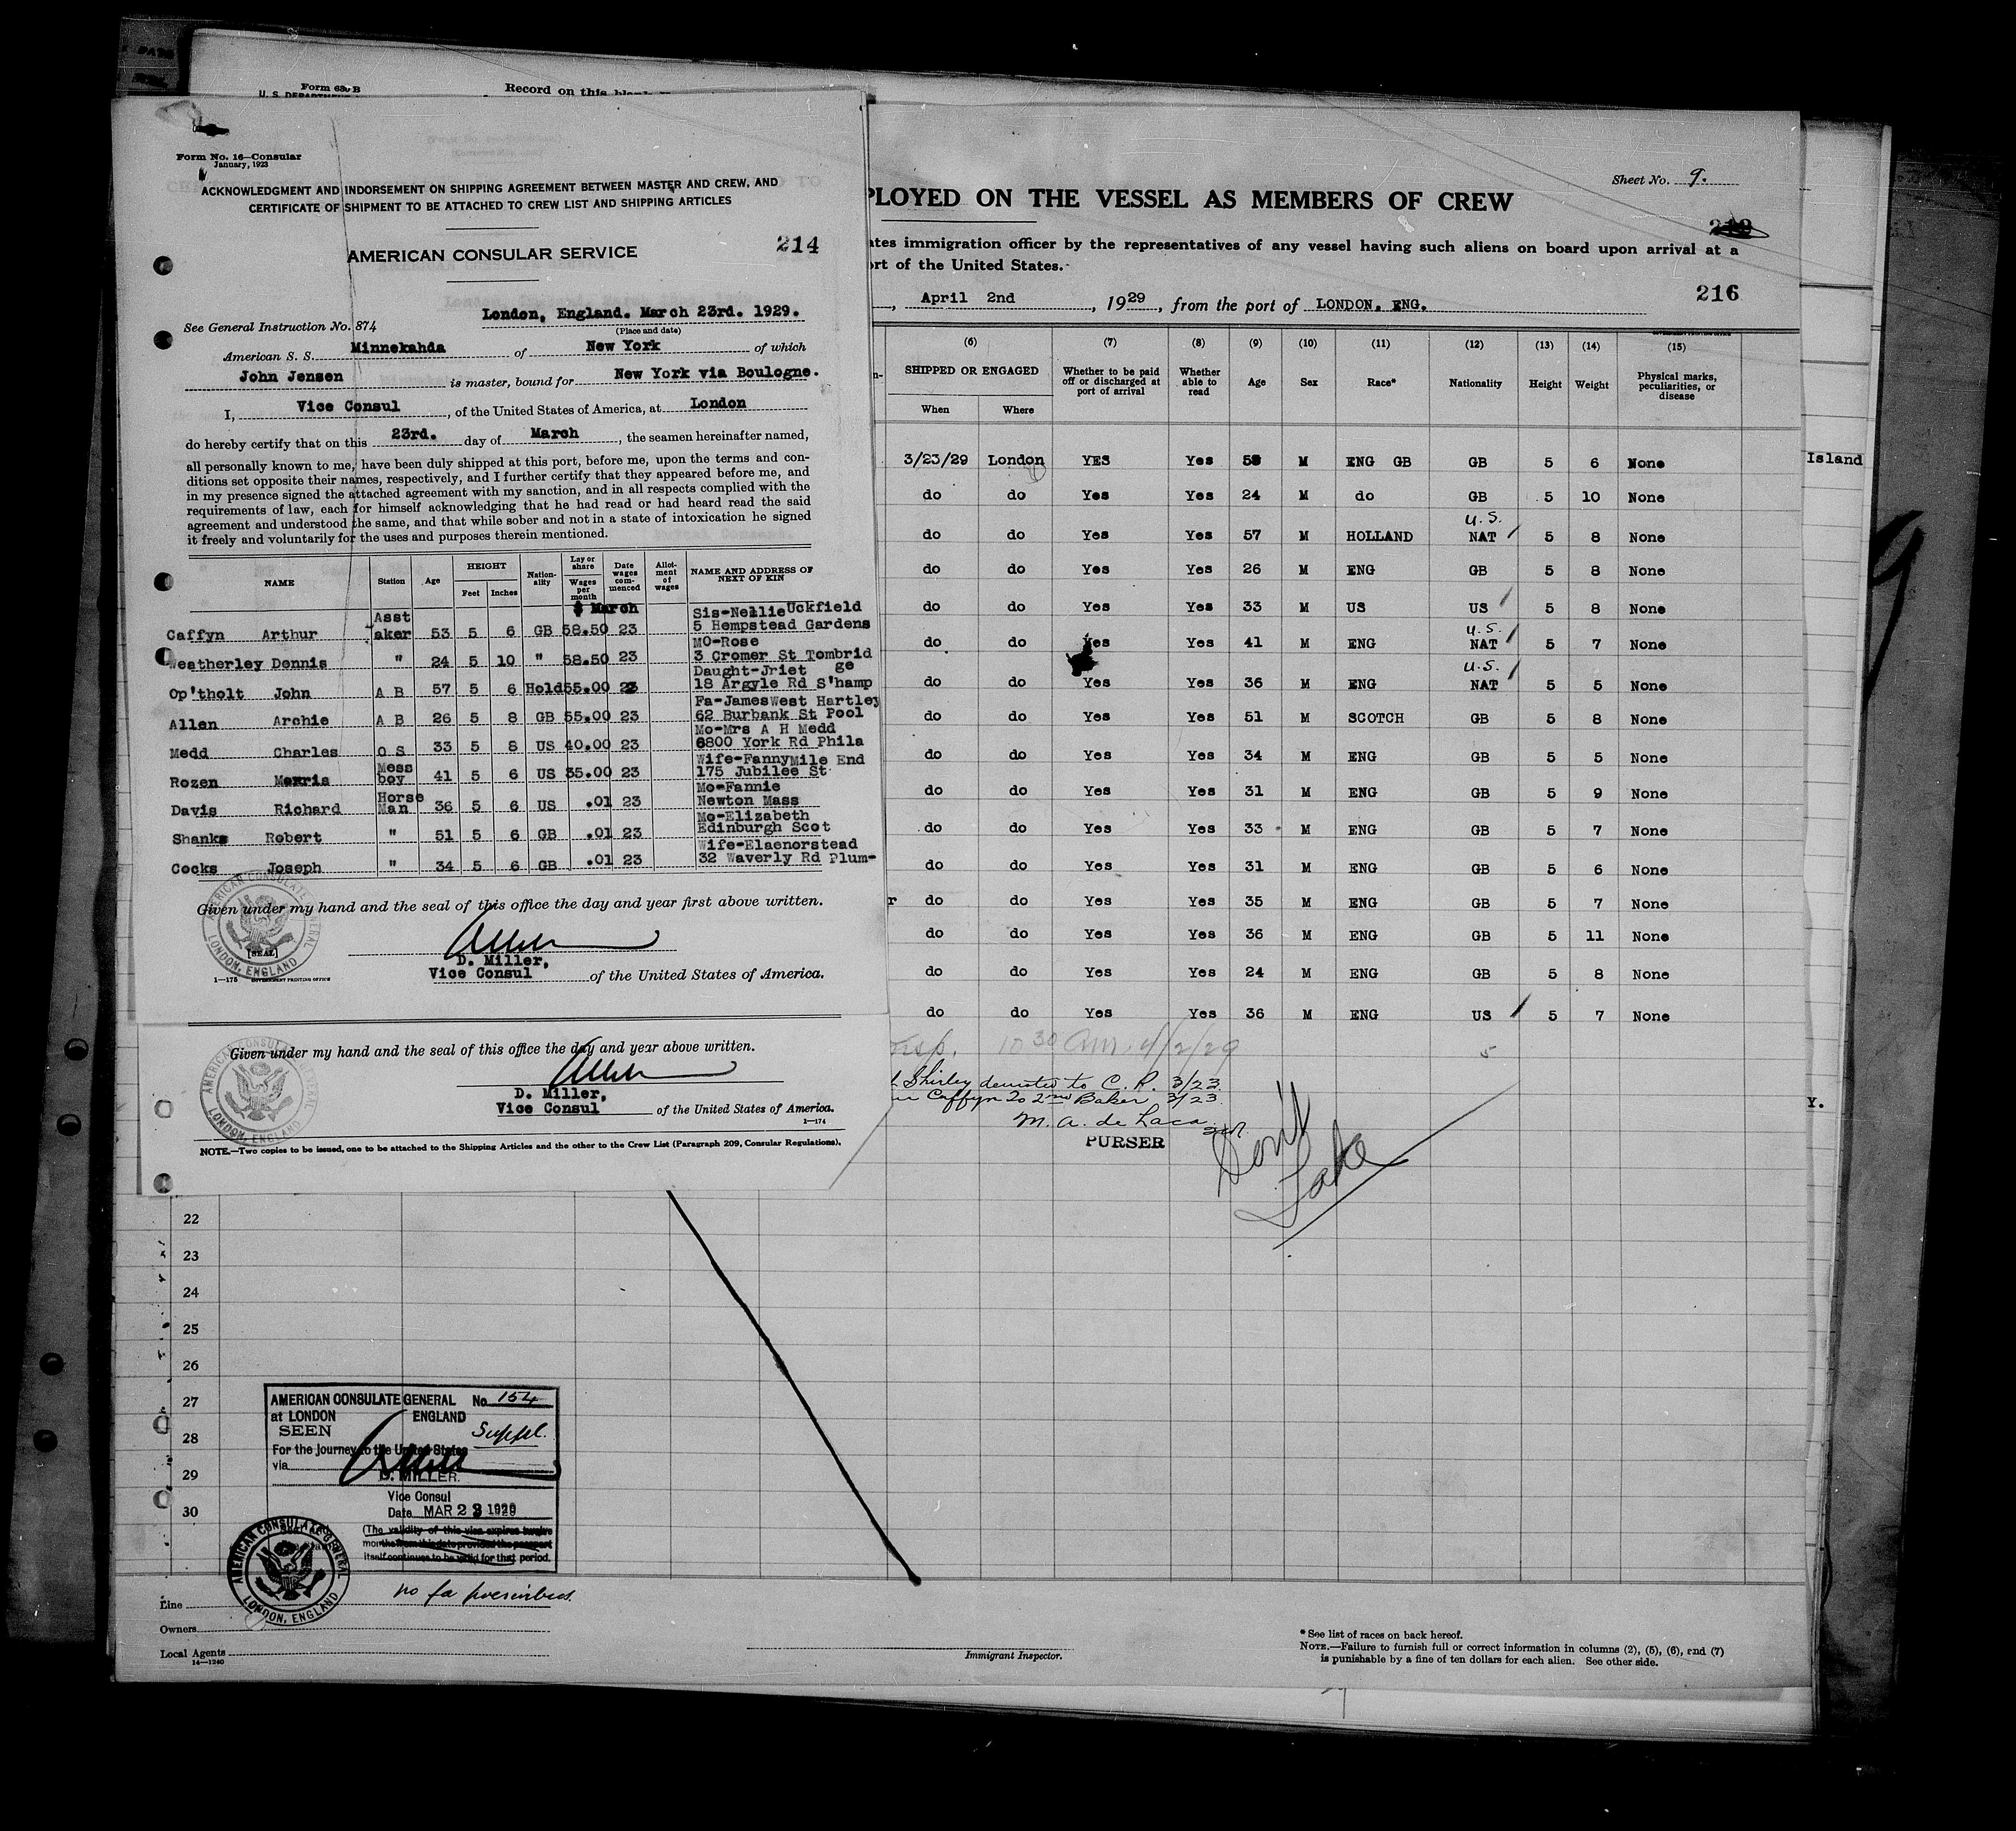 Form 630 B
Record on this blank
Form No. 16—Consular
January, 1923
ACKNOWLEDGMENT AND INDORSEMENT ON SHIPPING AGREEMENT BETWEEN MASTER AND CREW, AND
CERTIFICATE OF SHIPMENT TO BE ATTACHED TO CREW LIST AND SHIPPING ARTICLES
AMERICAN CONSULAR SERVICE
214
London, England. March 23rd. 1929.
(Place and date)
See General Instruction No. 874
American S. S. Minnekahda of New York of which
John Jensen is master, bound for New York via Boulogne.
I, Vice Consul, of the United States of America, at London
do hereby certify that on this 23rd. day of March, the seamen hereinafter named,
all personally known to me, have been duly shipped at this port, before me, upon the terms and con-
ditions set opposite their names, respectively, and I further certify that they appeared before me, and
in my presence signed the attached agreement with my sanction, and in all respects complied with the
requirements of law, each for himself acknowledging that he had read or had heard read the said
agreement and understood the same, and that while sober and not in a state of intoxication he signed
it freely and voluntarily for the uses and purposes therein mentioned.
NAME Station Age HEIGHT Feet Inches Nation-ality Lay or share Wages per month Date wages com-menced Allot-ment of wages NAME AND ADDRESS OF NEXT OF KIN
$ March
Caffyn Arthur Asst aker 53 5 6 GB 58.50 23 Sis-Nellie Uckfield 5 Hempstead Gardens
Weatherley Dennis " 24 5 10 " 58.50 23 MO-Rose 3 Cromer St Tombrid ge
Op'tholt John A B 57 5 6 Hold 55.00 23 Daught-Jriet 18 Argyle Rd S'hamp
Allen Archie A B 26 5 8 GB 55.00 23 Fa-James West Hartley 62 Burbank St Pool
Medd Charles O S 33 5 8 US 40.00 23 Mo-Mrs A H Medd 6800 York Rd Phila
Rozen Morris Mess boy 41 5 6 US 35.00 23 Wife-Fanny Mile End 175 Jubilee St
Davis Richard Horse Man 36 5 6 US .01 23 Mo-Fannie Newton Mass
Shanks Robert " 51 5 6 GB .01 23 Mo-Elizabeth Edinburgh Scot
Cocks Joseph " 34 5 6 GB .01 23 Wife-Elaenorstead 32 Waverly Rd Plum-
Given under my hand and the seal of this office the day and year first above written.
D. Miller,
Vice Consul of the United States of America.
[SEAL]
AMERICAN CONSULATE GENERAL LONDON, ENGLAND
1—175 GOVERNMENT PRINTING OFFICE
Given under my hand and the seal of this office the day and year above written.
D. Miller,
Vice Consul of the United States of America.
AMERICAN CONSULATE GENERAL LONDON, ENGLAND
1—174
NOTE.—Two copies to be issued, one to be attached to the Shipping Articles and the other to the Crew List (Paragraph 209, Consular Regulations).
Sheet No. 9.
PLOYED ON THE VESSEL AS MEMBERS OF CREW
ates immigration officer by the representatives of any vessel having such aliens on board upon arrival at a
ort of the United States.
216
April 2nd, 1929, from the port of LONDON, ENG.
(6) (7) (8) (9) (10) (11) (12) (13) (14) (15)
SHIPPED OR ENGAGED When Where Whether to be paid off or discharged at port of arrival Whether able to read Age Sex Race* Nationality Height Weight Physical marks, peculiarities, or disease
3/23/29 London YES Yes 53 M ENG GB GB 5 6 None
do do Yes Yes 24 M do GB 5 10 None
do do Yes Yes 57 M HOLLAND U.S. NAT 5 8 None
do do Yes Yes 26 M ENG GB 5 8 None
do do Yes Yes 33 M US US 5 8 None
do do Yes Yes 41 M ENG U.S. NAT 5 7 None
do do Yes Yes 36 M ENG U.S. NAT 5 5 None
do do Yes Yes 51 M SCOTCH GB 5 8 None
do do Yes Yes 34 M ENG GB 5 5 None
do do Yes Yes 31 M ENG GB 5 9 None
do do Yes Yes 33 M ENG GB 5 7 None
do do Yes Yes 31 M ENG GB 5 6 None
r do do Yes Yes 35 M ENG GB 5 7 None
do do Yes Yes 36 M ENG GB 5 11 None
do do Yes Yes 24 M ENG GB 5 8 None
do do Yes Yes 36 M ENG US 5 7 None
Insp. 10 30 am. 4/2/29 5
Shirley demoted to C. R. 3/23
Caffyn to 2nd Baker 3/23
M. A. de Laca
PURSER
Island
Y.
22
23
24
25
26
27
28
29
30
AMERICAN CONSULATE GENERAL No. 154
at LONDON ENGLAND
SEEN Suppl.
For the journey to the United States
via
D. MILLER.
Vice Consul
Date MAR 23 1929
(The validity of this visa expires twelve
months from this date provided the passport
itself continues to be valid for that period.
AMERICAN CONSULATE GENERAL LONDON, ENGLAND
no fee prescribed.
Line
Owners
Local Agents
14—1240
Immigrant Inspector.
* See list of races on back hereof.
NOTE.—Failure to furnish full or correct information in columns (2), (5), (6), and (7)
is punishable by a fine of ten dollars for each alien. See other side.